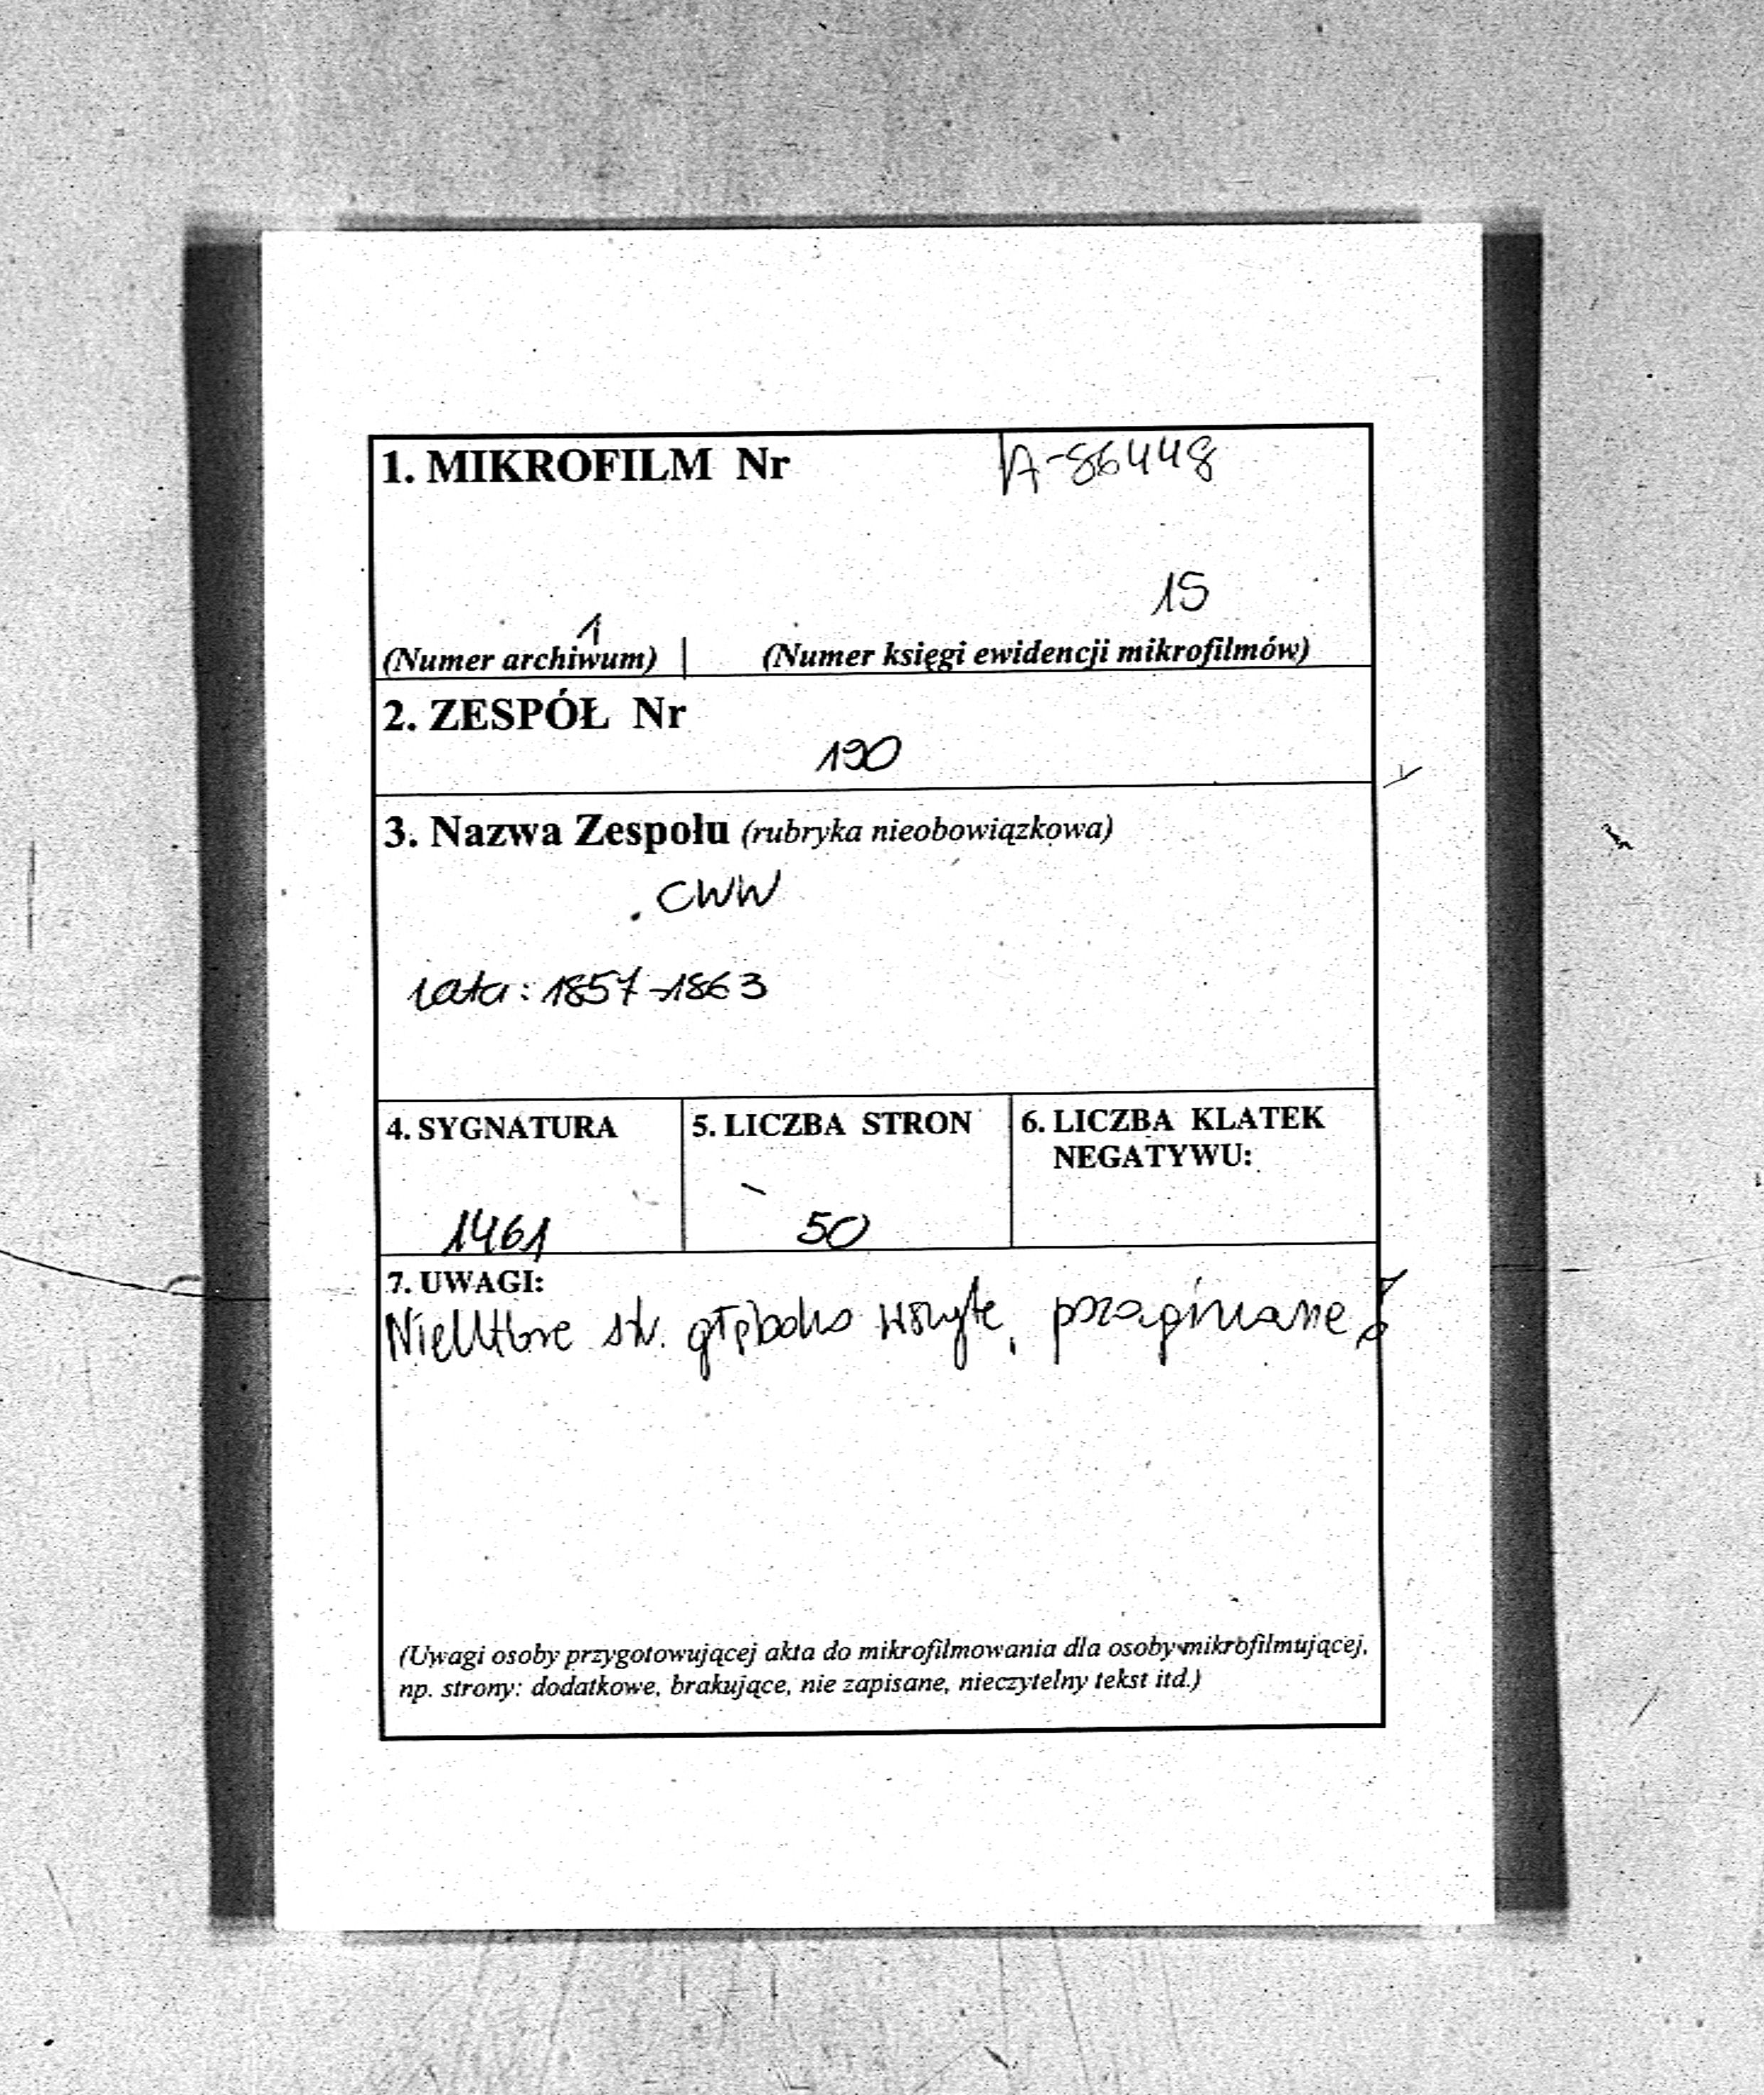 1. MIKROFILM Nr A-86448
15
1
(Numer archiwum) | (Numer księgi ewidencji mikrofilmów)
2. ZESPÓŁ Nr
190
3. Nazwa Zespołu (rubryka nieobowiązkowa)
CWW
lata: 1857-1863
4. SYGNATURA 5. LICZBA STRON 6. LICZBA KLATEK
NEGATYWU:
1461 50
7. UWAGI:
Niektóre str. głęboko wszyte, pozaginane
(Uwagi osoby przygotowującej akta do mikrofilmowania dla osoby mikrofilmującej,
np. strony: dodatkowe, brakujące, nie zapisane, nieczytelny tekst itd.)